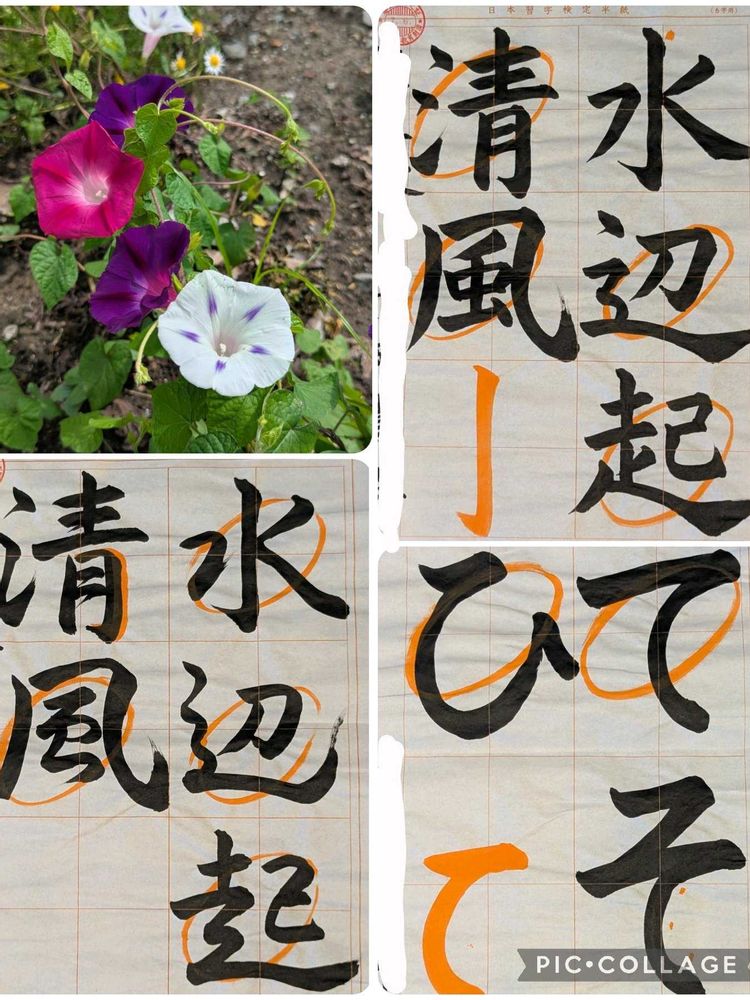 日本習字検定半紙
水辺起
清風
水辺起
清風
てそ
ひて
PIC•COLLAGE